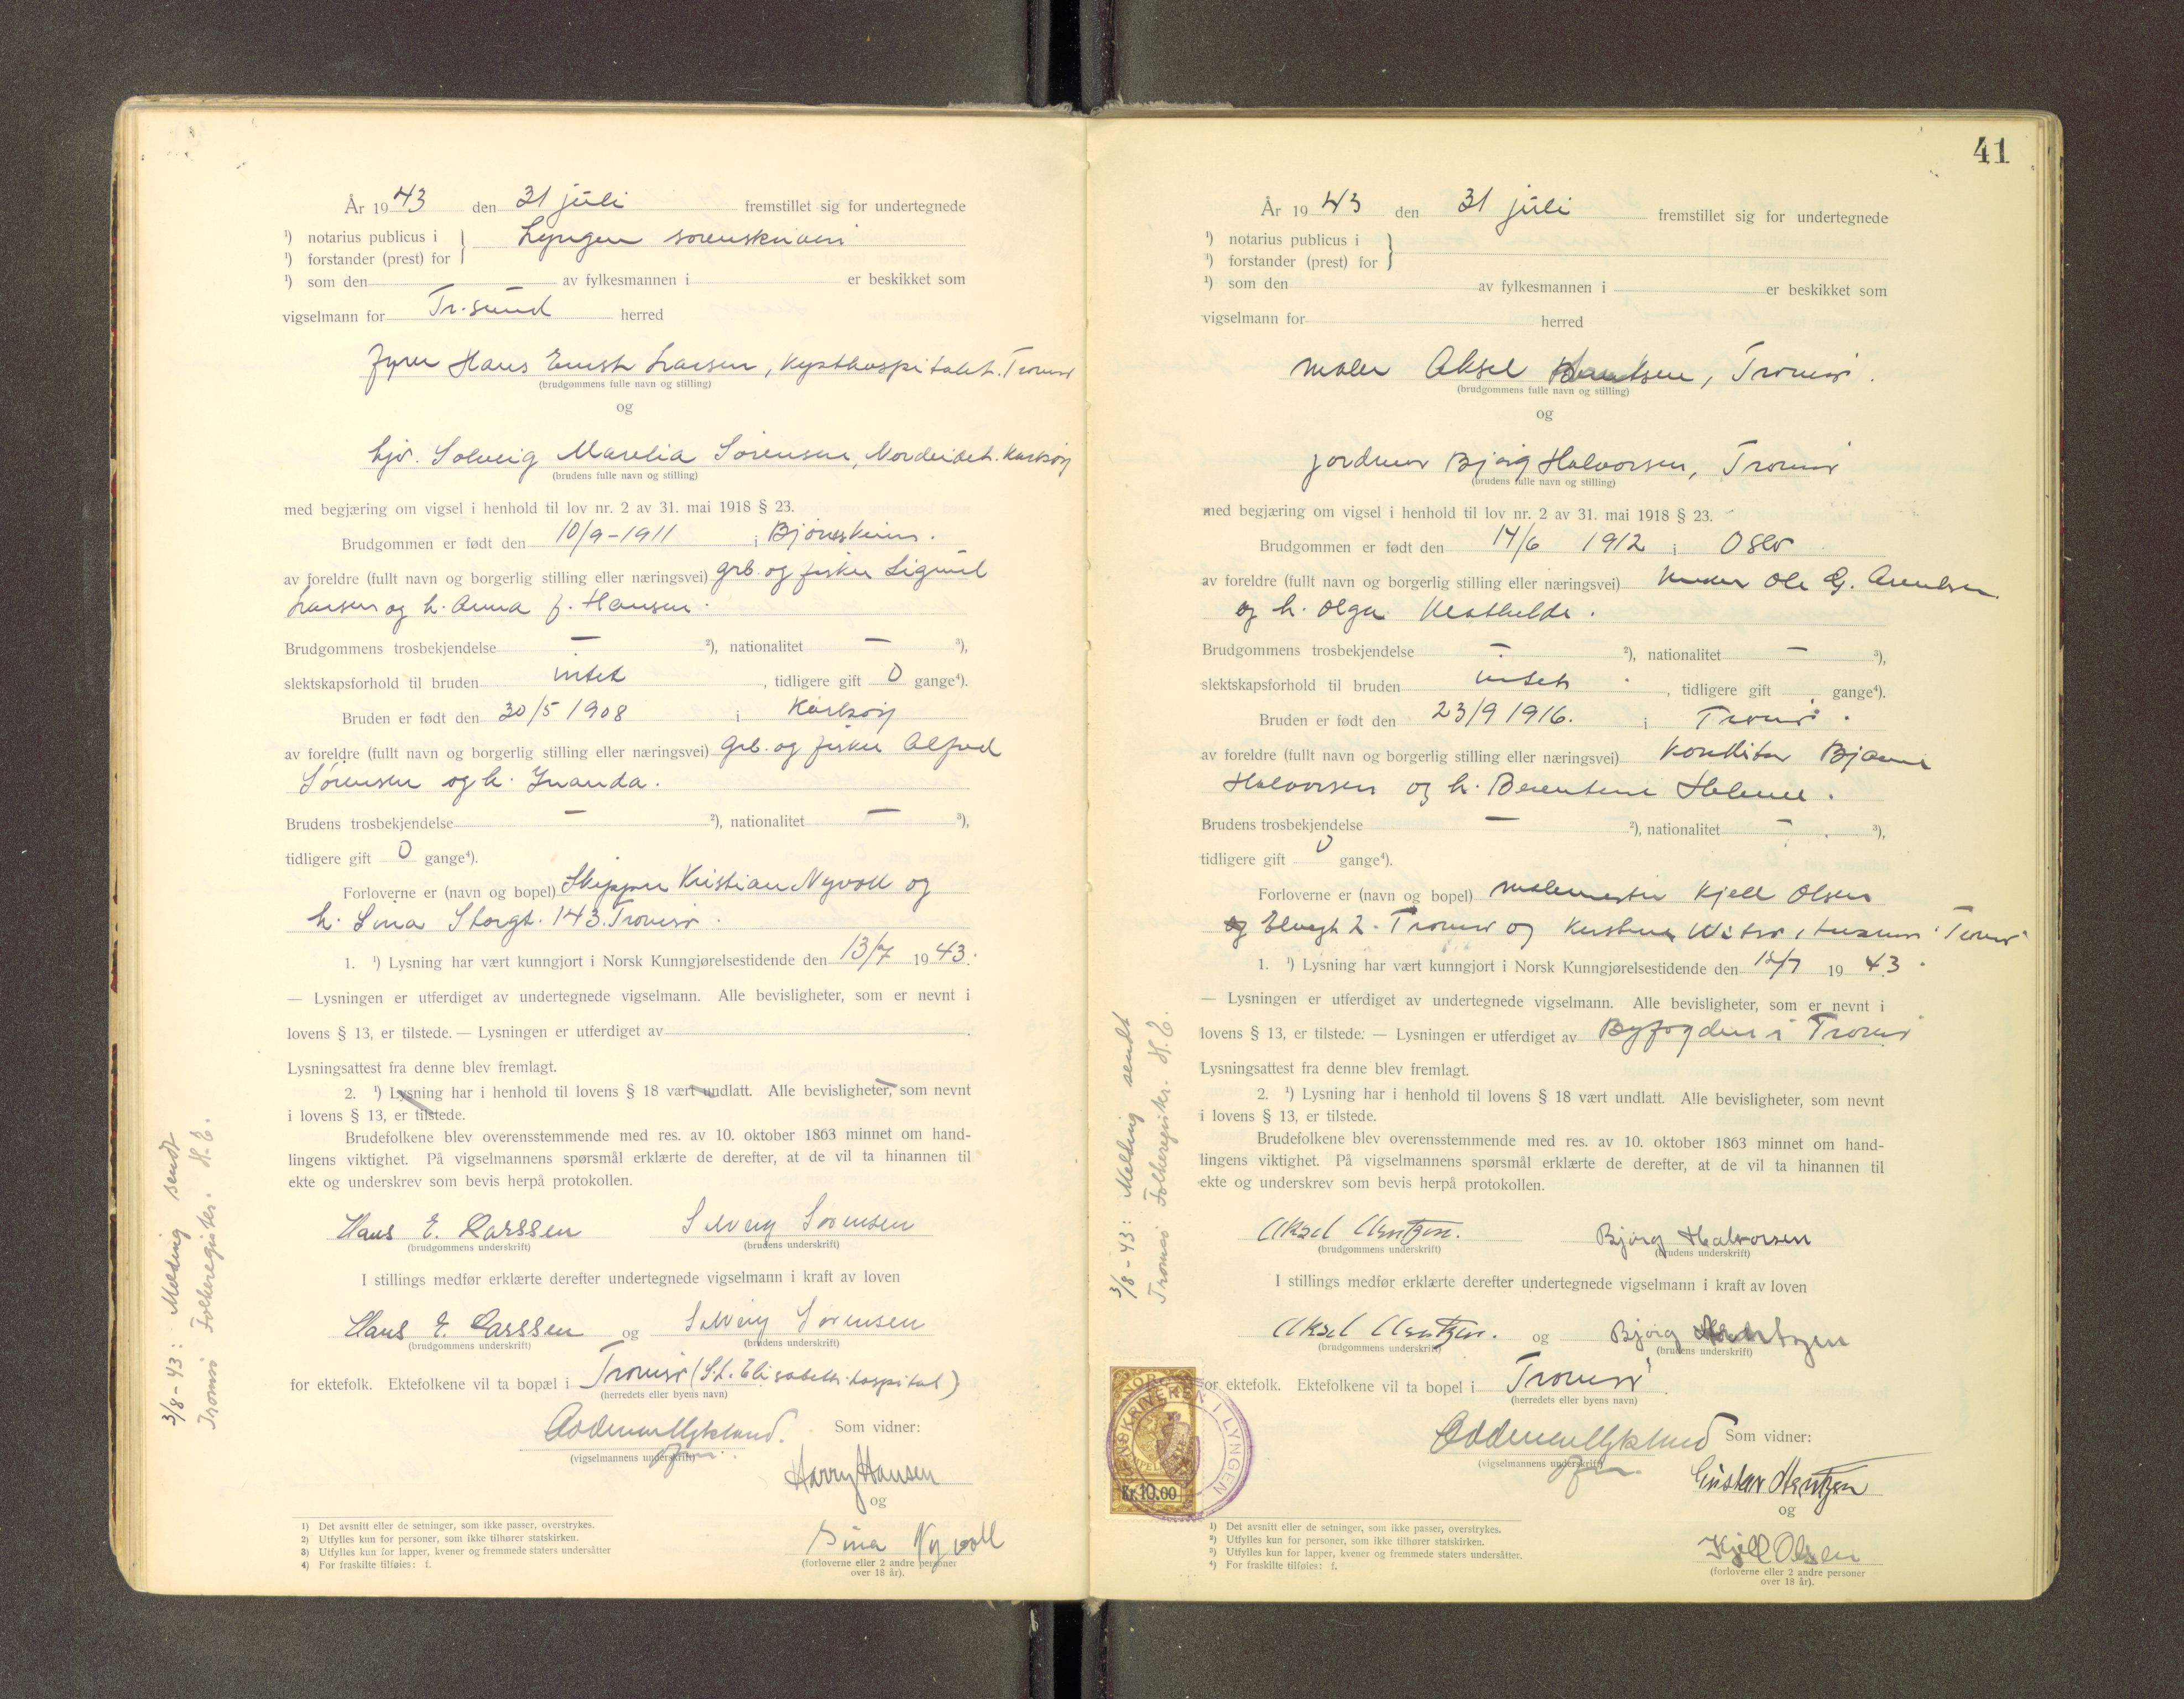 År 1943 den 31 juli fremstillet sig for undertegnede
¹) notarius publicus i } Lyngen sorenskriveri
¹) forstander (prest) for
¹) som den av fylkesmannen i er beskikket som
vigselmann for Tr.sund herred
Fyrb. Hans Ernst Larsen, Kysthospitalet. Tromsø
(brudgommens fulle navn og stilling)
og
hjv. Solveig Marelia Sørensen, Nordeidet. Karlsøy
(brudens fulle navn og stilling)
med begjæring om vigsel i henhold til lov nr. 2 av 31. mai 1918 § 23.
Brudgommen er født den 10/9-1911 i
av foreldre (fullt navn og borgerlig stilling eller næringsvei) grb. og fisker Sigurd
Larsen og h. Anna f. Hansen.
Brudgommens trosbekjendelse — ²), nationalitet — ³),
slektskapsforhold til bruden intet, tidligere gift 0 gange⁴).
Bruden er født den 30/5 1908 i Karlsøy
av foreldre (fullt navn og borgerlig stilling eller næringsvei) grb. og fisker Alfred
Sørensen og h. Inanda.
Brudens trosbekjendelse — ²), nationalitet — ³),
tidligere gift 0 gange⁴).
Forloverne er (navn og bopel) Skipper Kristian Nyvoll og
h. Sina Storgt. 143. Tromsø.
1. ¹) Lysning har vært kunngjort i Norsk Kunngjørelsestidende den 13/7 1943.
— Lysningen er utferdiget av undertegnede vigselmann. Alle bevisligheter, som er nevnt i
lovens § 13, er tilstede. — Lysningen er utferdiget av .
Lysningsattest fra denne blev fremlagt.
2. ¹) Lysning har i henhold til lovens § 18 vært undlatt. Alle bevisligheter, som nevnt
i lovens § 13, er tilstede.
Brudefolkene blev overensstemmende med res. av 10. oktober 1863 minnet om hand-
lingens viktighet. På vigselmannens spørsmål erklærte de derefter, at de vil ta hinannen til
ekte og underskrev som bevis herpå protokollen.
Hans E. Larssen Solveig Sørensen
(brudgommens underskrift) (brudens underskrift)
I stillings medfør erklærte derefter undertegnede vigselmann i kraft av loven
Hans E. Larssen og Solveig Sørensen
(brudgommens underskrift) (brudens underskrift)
for ektefolk. Ektefolkene vil ta bopæl i Tromsø (St. Elisabeths hospital)
(herredets eller byens navn)
Som vidner:
(vigselmannens underskrift)
Harry Hansen
og
Sina Nyvoll
(forloverne eller 2 andre personer
over 18 år).
1) Det avsnitt eller de setninger, som ikke passer, overstrykes.
2) Utfylles kun for personer, som ikke tilhører statskirken.
3) Utfylles kun for lapper, kvener og fremmede staters undersåtter
4) For fraskilte tilføies: f.
3/8-43: Melding sendt
Tromsø Folkeregister. H.E.
41
År 1943 den 31 juli fremstillet sig for undertegnede
¹) notarius publicus i }
¹) forstander (prest) for
¹) som den av fylkesmannen i er beskikket som
vigselmann for herred
maler Aksel , Tromsø.
(brudgommens fulle navn og stilling)
og
jordmor Bjørg Halvorsen, Tromsø
(brudens fulle navn og stilling)
med begjæring om vigsel i henhold til lov nr. 2 av 31. mai 1918 § 23.
Brudgommen er født den 14/6 1912 i Oslo
av foreldre (fullt navn og borgerlig stilling eller næringsvei) Ole G.
og h. Olga
Brudgommens trosbekjendelse — ²), nationalitet — ³),
slektskapsforhold til bruden intet, tidligere gift gange⁴).
Bruden er født den 23/9 1916. i Tromsø.
av foreldre (fullt navn og borgerlig stilling eller næringsvei) konditor Bjarne
Halvorsen og h. Berentine Helene.
Brudens trosbekjendelse — ²), nationalitet — ³),
tidligere gift 0 gange⁴).
Forloverne er (navn og bopel) malermester Kjell Olsen
Elvegt 2. Tromsø og Tromsø
1. ¹) Lysning har vært kunngjort i Norsk Kunngjørelsestidende den 19 43.
— Lysningen er utferdiget av undertegnede vigselmann. Alle bevisligheter, som er nevnt i
lovens § 13, er tilstede. — Lysningen er utferdiget av Byfogden i Tromsø
Lysningsattest fra denne blev fremlagt.
2. ¹) Lysning har i henhold til lovens § 18 vært undlatt. Alle bevisligheter, som nevnt
i lovens § 13, er tilstede.
Brudefolkene blev overensstemmende med res. av 10. oktober 1863 minnet om hand-
lingens viktighet. På vigselmannens spørsmål erklærte de derefter, at de vil ta hinannen til
ekte og underskrev som bevis herpå protokollen.
Aksel Arntzen. Bjørg Halvorsen
(brudgommens underskrift) (brudens underskrift)
I stillings medfør erklærte derefter undertegnede vigselmann i kraft av loven
Aksel Arntzen. og Bjørg Arntzen
(brudgommens underskrift) (brudens underskrift)
for ektefolk. Ektefolkene vil ta bopel i Tromsø
(herredets eller byens navn)
Som vidner:
(vigselmannens underskrift)
Gustav Arntzen
og
Kjell Olsen
(forloverne eller 2 andre personer
over 18 år).
1) Det avsnitt eller de setninger, som ikke passer, overstrykes.
2) Utfylles kun for personer, som ikke tilhører statskirken.
3) Utfylles kun for lapper, kvener og fremmede staters undersåtter.
4) For fraskilte tilføies: f.
3/8-43: Melding sendt
Tromsø Folkeregister. H.E.
Kr. 10.00
I LYNGEN